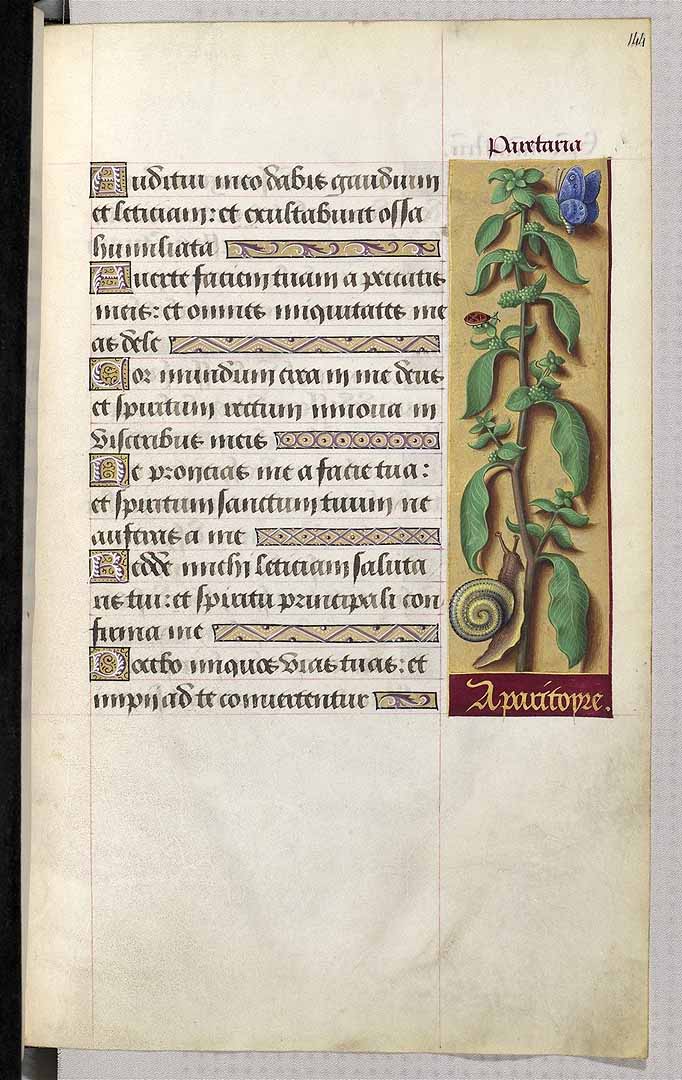 144
Paretaria
Auditui meo dabis gaudium
et leticiam: et exultabunt ossa
humiliata
Auerte faciem tuam a peccatis
meis: et omnes iniquitates me
as dele
Cor mundum crea in me deus
et spiritum rectum innoua in
visceribus meis
Ne proiicias me a facie tua:
et spiritum sanctum tuum ne
auferas a me
Redde michi leticiam saluta
ris tui: et spiritu principali con
firma me
Docebo iniquos vias tuas: et
impii ad te conuertentur
Aparitoyre.